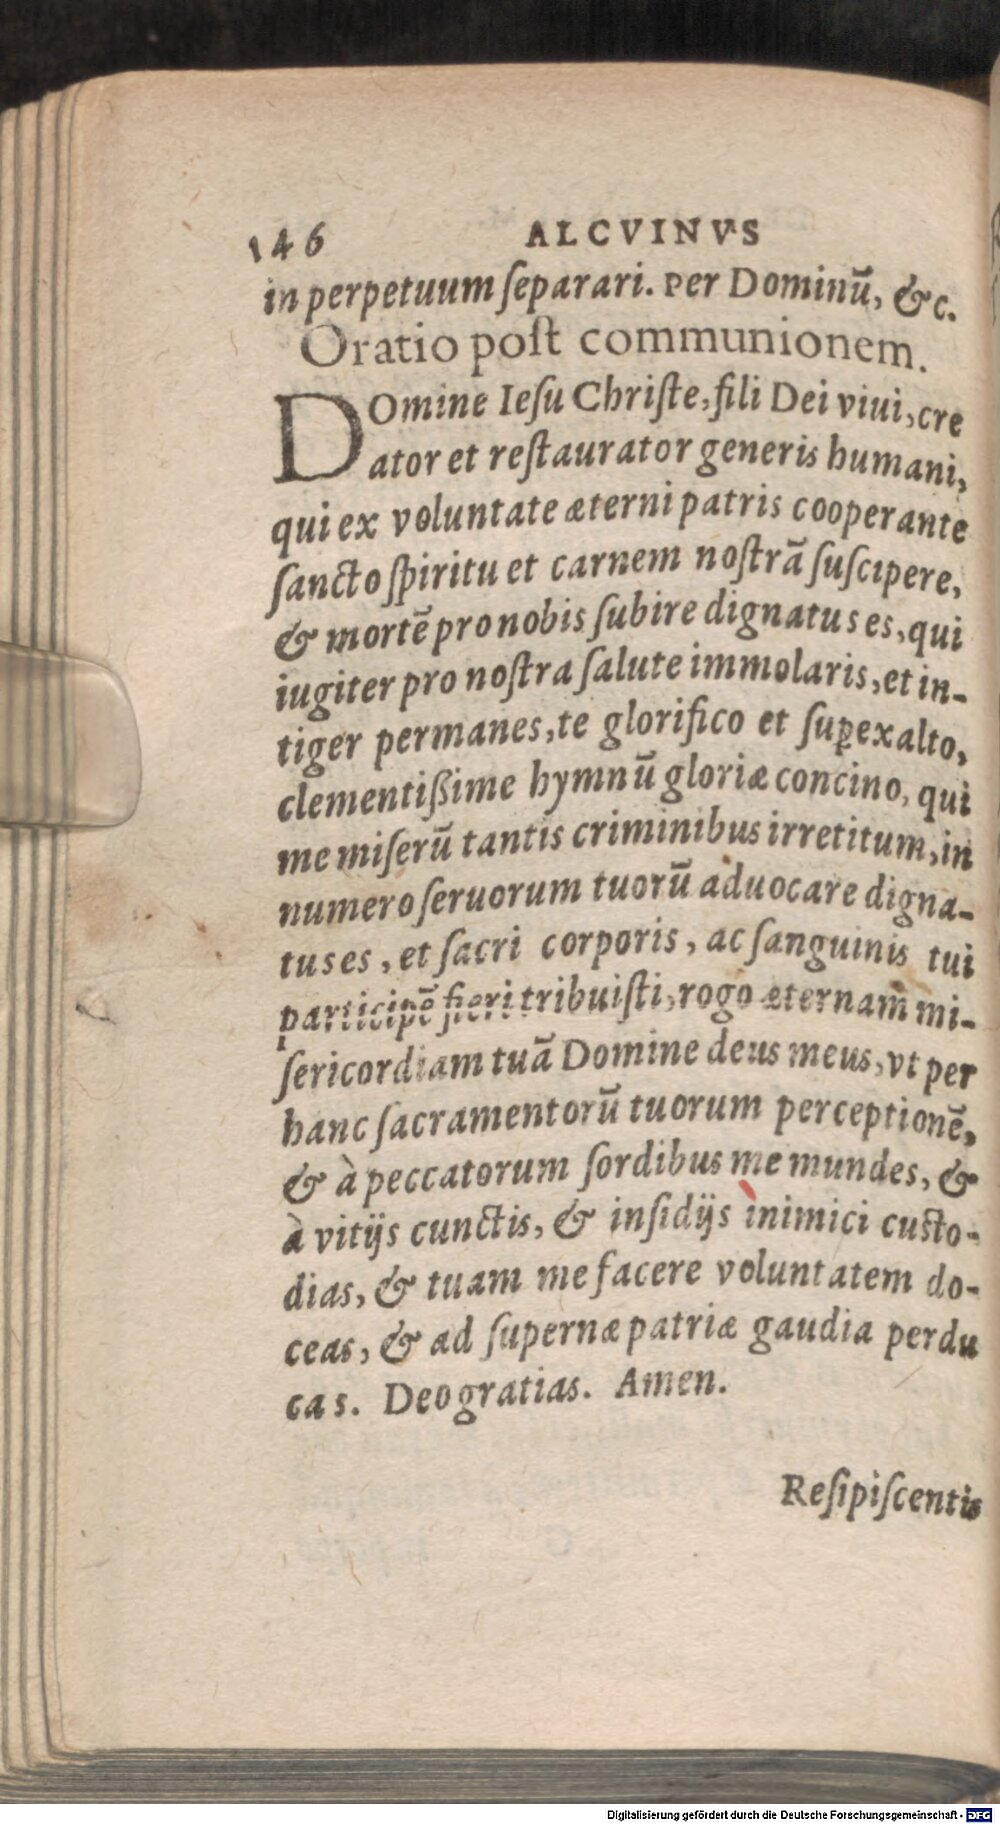 146 ALCVINVS
in perpetuum ſeparari. Per Dominū, &c.
Oratio poſt communionem.
DOmine Ieſu Chriſte, fili Dei viui, cre
ator et reſtaurator generis humani,
qui ex voluntate æterni patris cooperante
ſancto ſpiritu et carnem noſtrā ſuſcipere,
& mortē pro nobis ſubire dignatus es, qui
iugiter pro noſtra ſalute immolaris, et in-
tiger permanes, te glorifico et ſuꝑexalto,
clementißime hymnū gloriæ concino, qui
me miſerū tantis criminibus irretitum, in
numero ſeruorum tuorū aduocare digna-
tus es, et ſacri corporis, ac ſanguinis tui
participē fieri tribuiſti, rogo æternam mi-
ſericordiam tuā Domine deus meus, vt per
hanc ſacramentorū tuorum perceptionē,
& à peccatorum ſordibus me mundes, &
à vitijs cunctis, & inſidijs inimici cuſto-
dias, & tuam me facere voluntatem do-
ceas, & ad ſupernæ patriæ gaudia perdu
cas. Deo gratias. Amen.
Reſipiſcentis
Digitalisierung gefördert durch die Deutsche Forschungsgemeinschaft - DFG